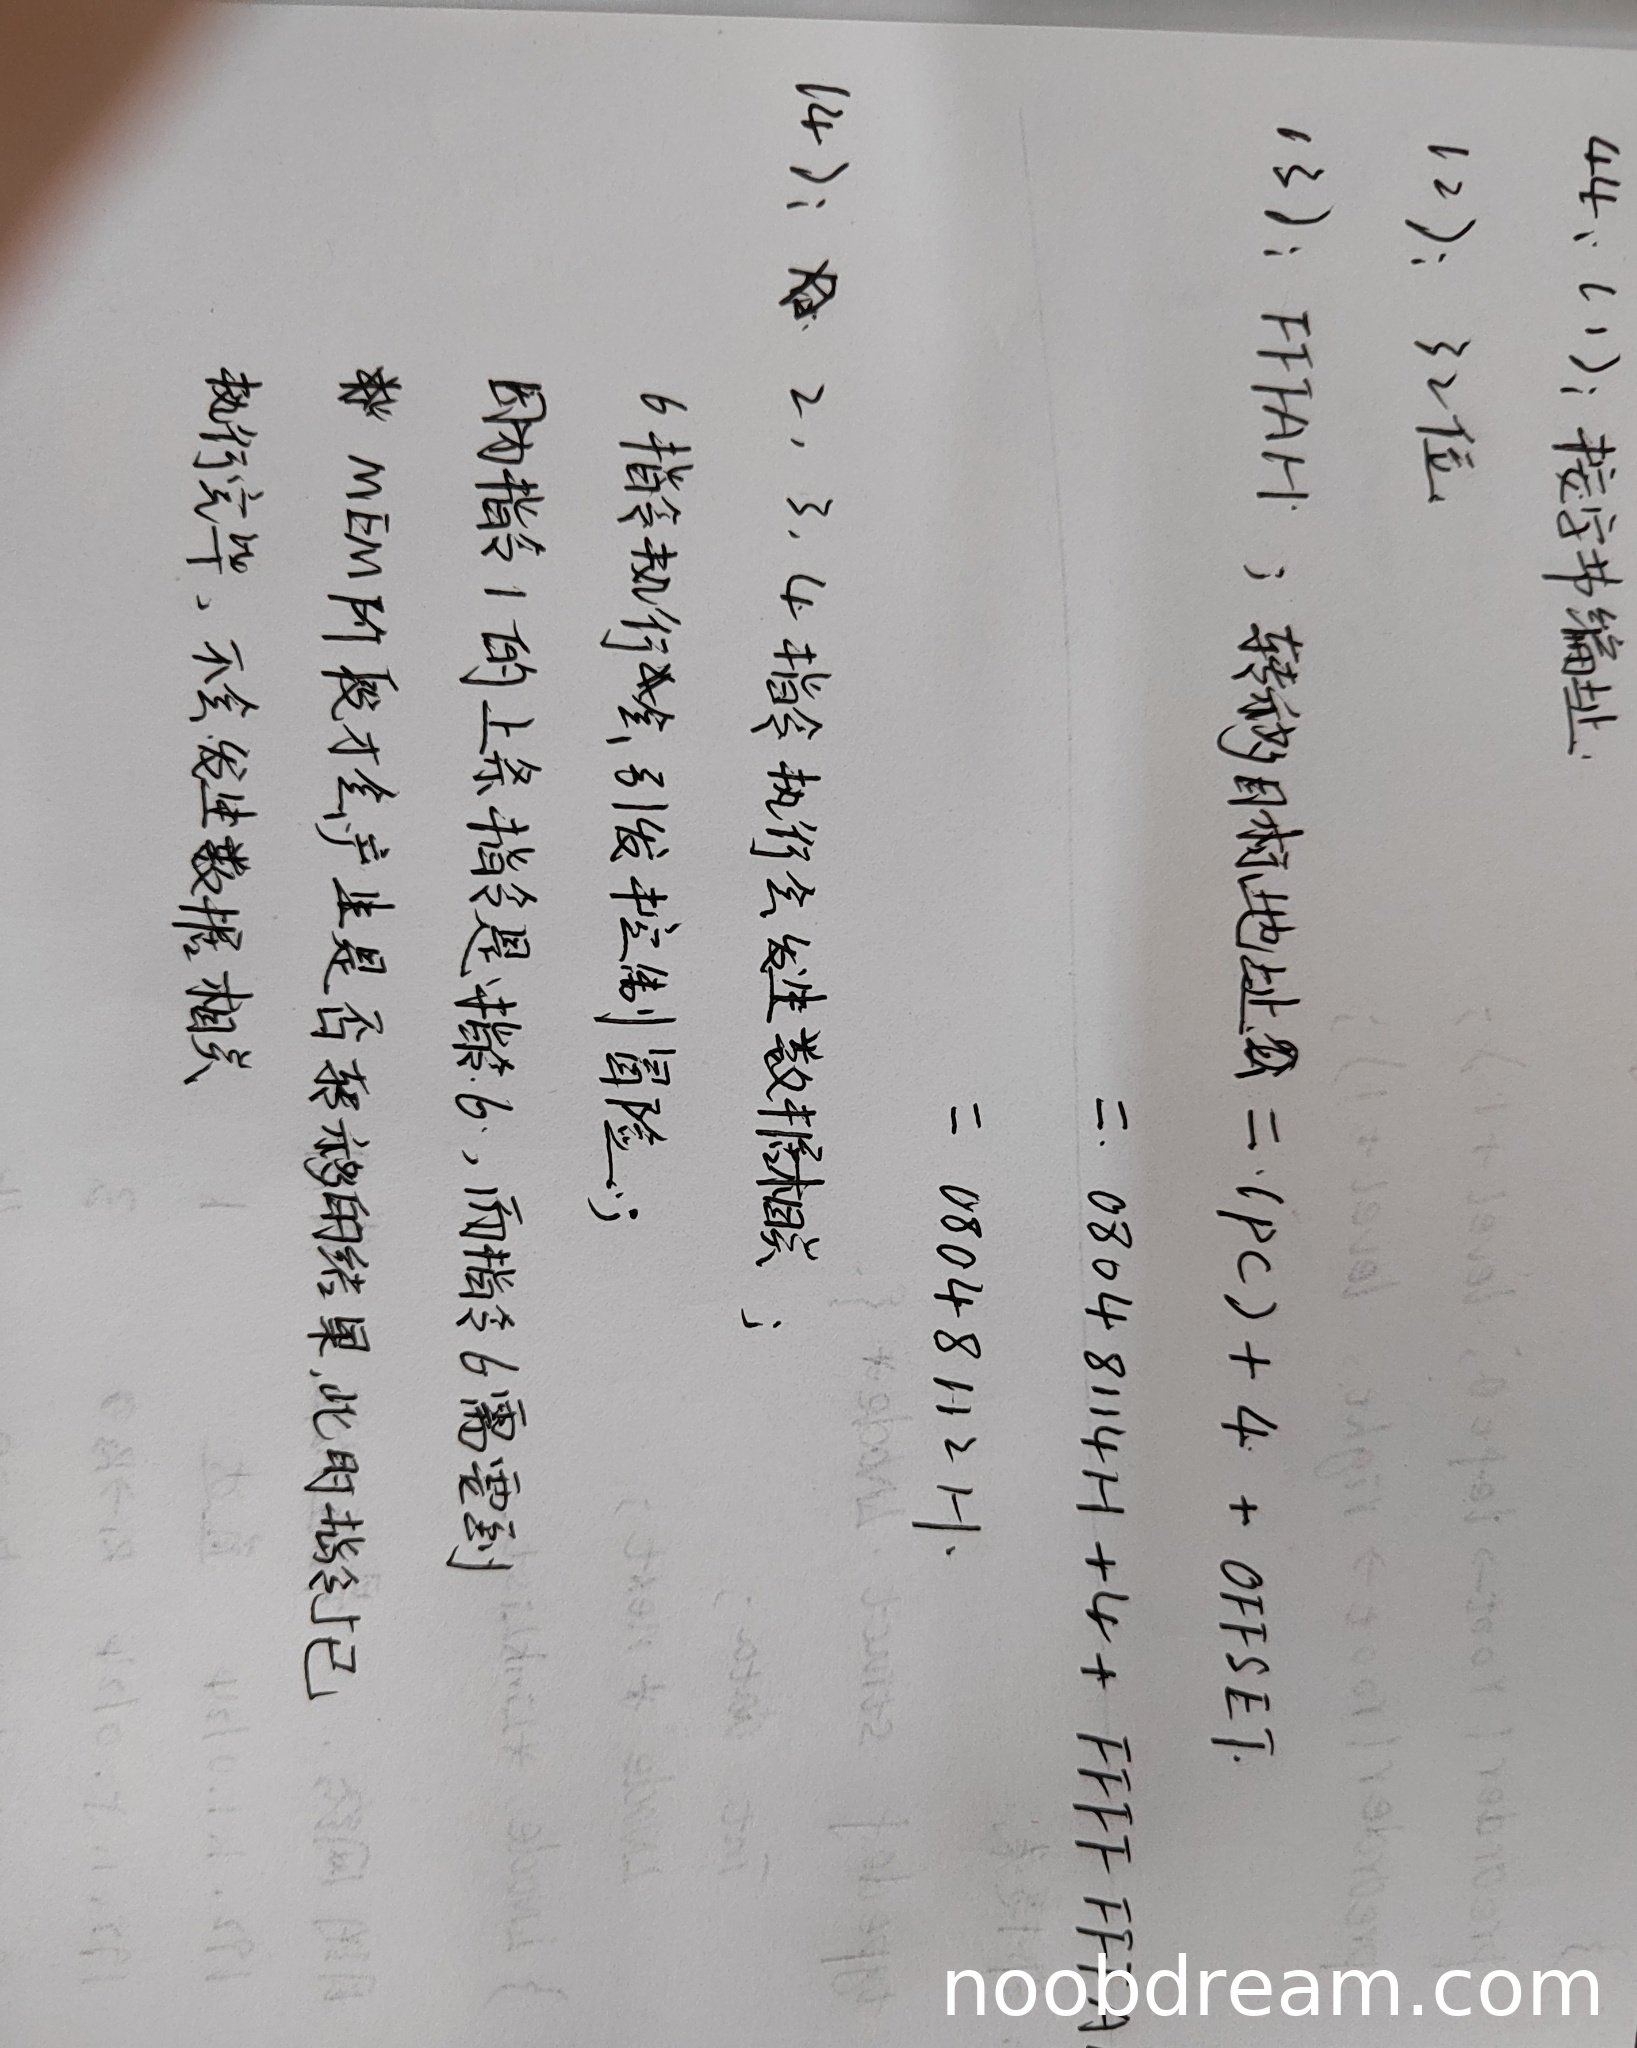 44、(1): 按字节编址.
(2): 32位
(3): FFAH ; 转移目标地址 = (PC) + 4 + OFFSET
= 0804 8114H + 4 + FFFF FFFA
= 0804 8112H.
(4): 2, 3, 4 指令执行会发生数据相关 ;
6 指令执行会引发控制冒险 ;
因为指令1的上条指令是指令6, 而指令6需要到
MEM阶段才会产生是否转移的结果, 此时指令1已
执行完毕, 不会发生数据相关
noobdream.com